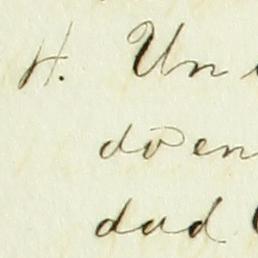 4. Un
doen
dad